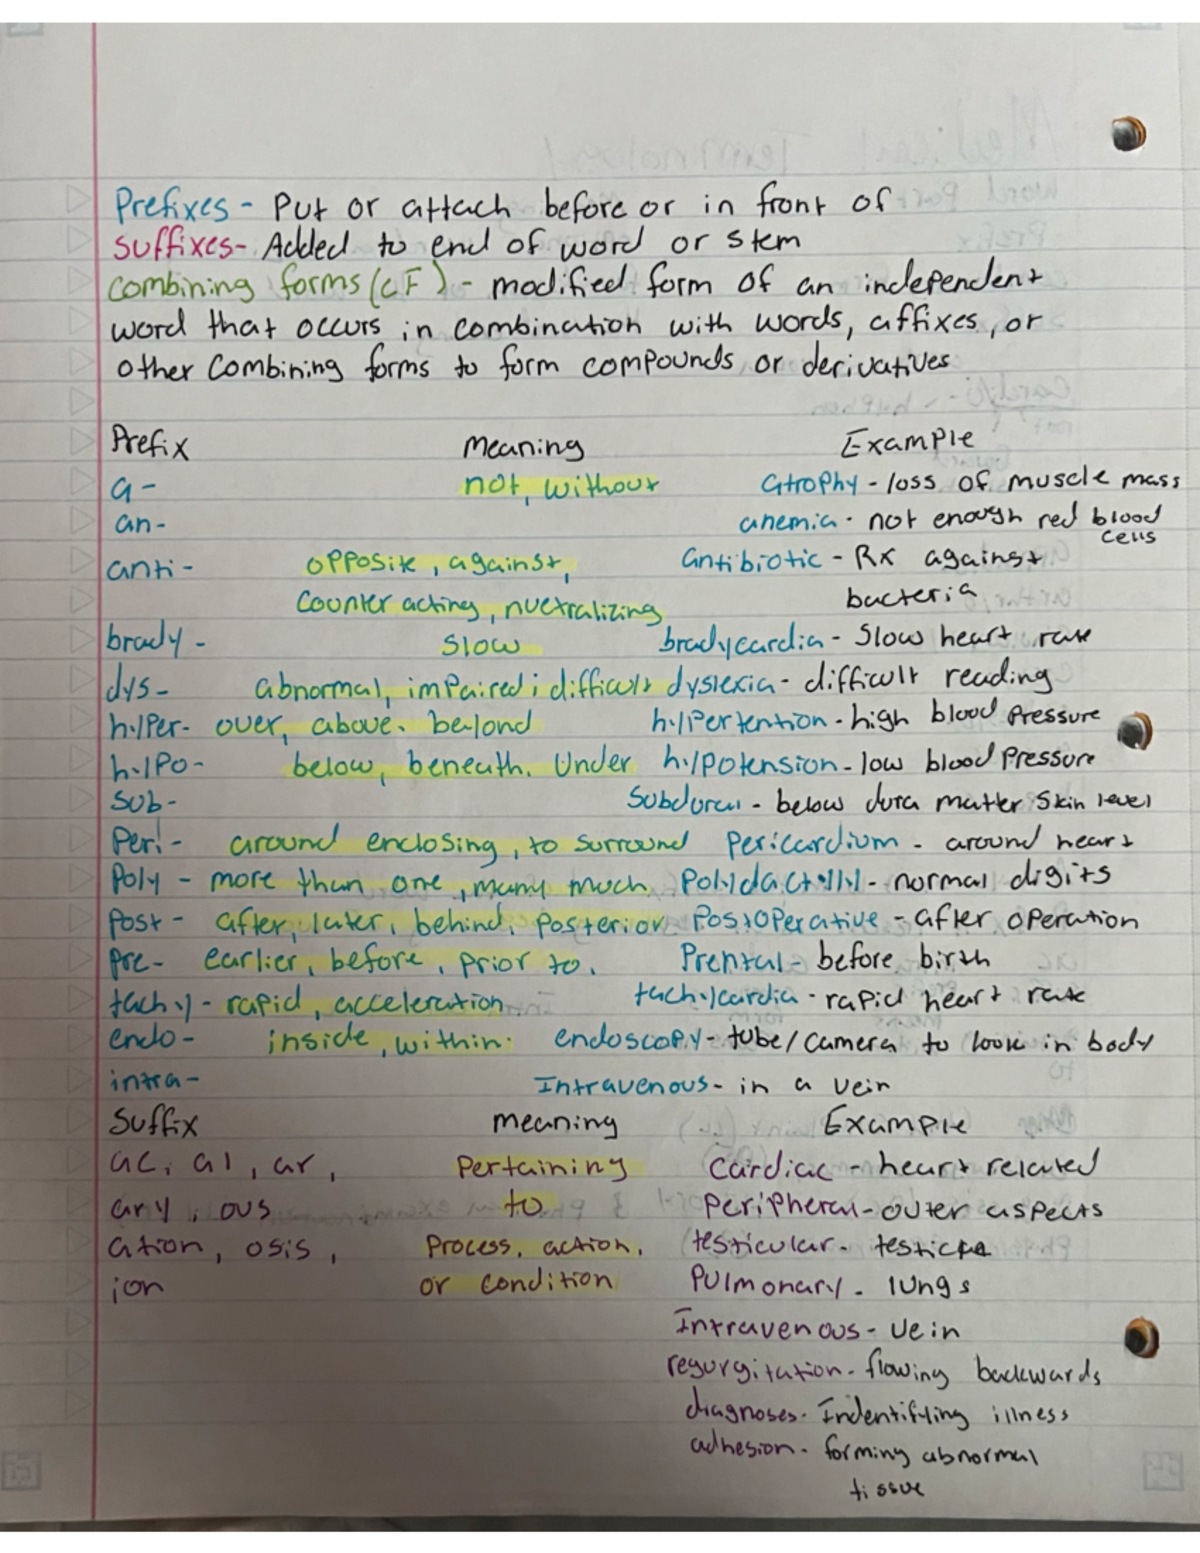 Prefixes - Put or attach before or in front of
Suffixes - Added to end of word or stem
combining forms (CF) - modified form of an independent
word that occurs in combination with words, affixes, or
other combining forms to form compounds or derivatives
Prefix Meaning Example
a- not, without atrophy - loss of muscle mass
an- anemia - not enough red blood
cells
anti- opposite, against, antibiotic - Rx against
counter acting, nuetralizing bacteria
brady- slow bradycardia - slow heart rate
dys- abnormal, impaired; difficult dyslexia - difficult reading
hyper- over, above, beyond hypertention - high blood pressure
hypo- below, beneath. Under hypotension - low blood pressure
sub- subdural - below dura matter skin level
Peri- around enclosing, to surround Pericardium - around heart
Poly - more than one, many much Polydactyly - normal digits
Post - after, later, behind, posterior Postoperative - after operation
pre- earlier, before, prior to. Prental - before birth
tachy - rapid, acceleration tachycardia - rapid heart rate
endo - inside, within. endoscopy - tube/camera to look in body
intra- Intravenous - in a vein
Suffix meaning Example
ac, al, ar, Pertaining Cardiac - heart related
ary, ous to Peripheral - outer aspects
ation, osis, Process, action, testicular -
ion or condition Pulmonary - lungs
Intravenous - vein
regurgitation - flowing backwards
diagnoses - Indentifying illness
adhesion - forming abnormal
tissue